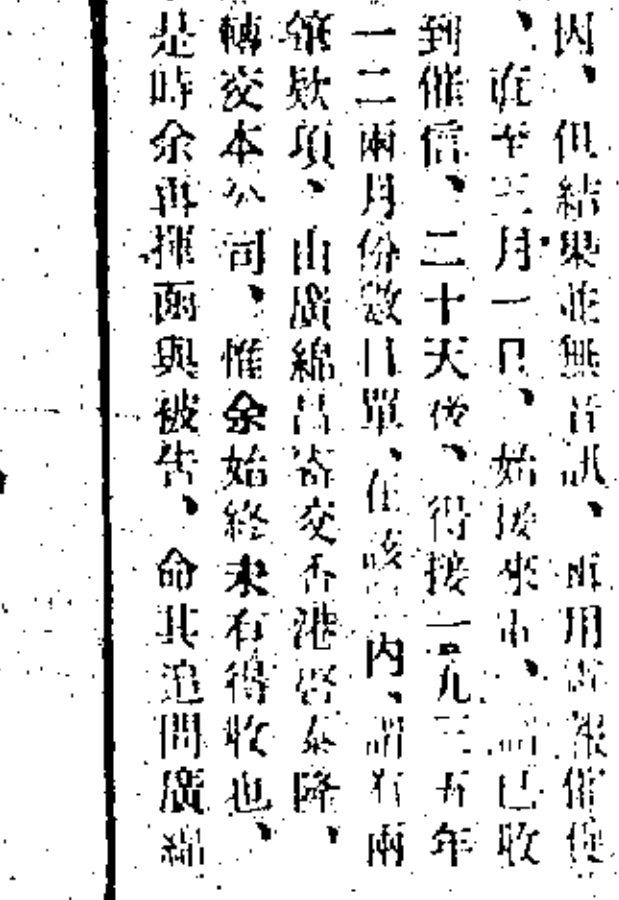 因、但結果並無音訊、再用電報催促
、直至三月一日、始接來電、謂已收
到催信、二十天後、得接一九三五年
一二兩月份數目單、但該單內、謂有兩
欵項、由廣綿昌寄交香港泰隆、
轉交本公司、惟余始終未有得收也、
是時余再揮函與被告、命其追問廣綿